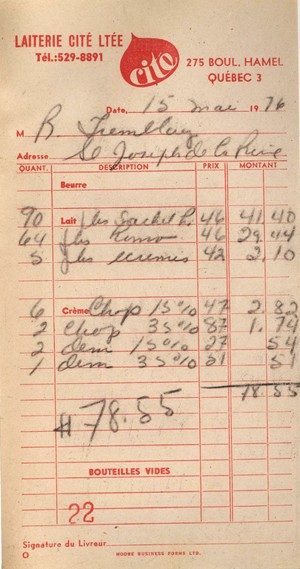 LAITERIE CITÉ LTÉE
Tél.:529-8891
cité
275 BOUL. HAMEL
QUÉBEC 3
Date, 15 mai 1976
M R. Tremblay
Adresse St Joseph de la Rive
QUANT. DESCRIPTION PRIX MONTANT
Beurre
90 Lait Jbs Sachet P. 46 41.40
64 Jbs 46 29.44
5 Jbs ecremis 42 2.10
6 Crème Chop 15% 47 2.82
2 Chop 35% 87 1.74
2 demi 15% 27 54
1 demi 35% 51 51
78.55
# 78.55
BOUTEILLES VIDES
22
Signature du Livreur
O MOORE BUSINESS FORMS LTD.